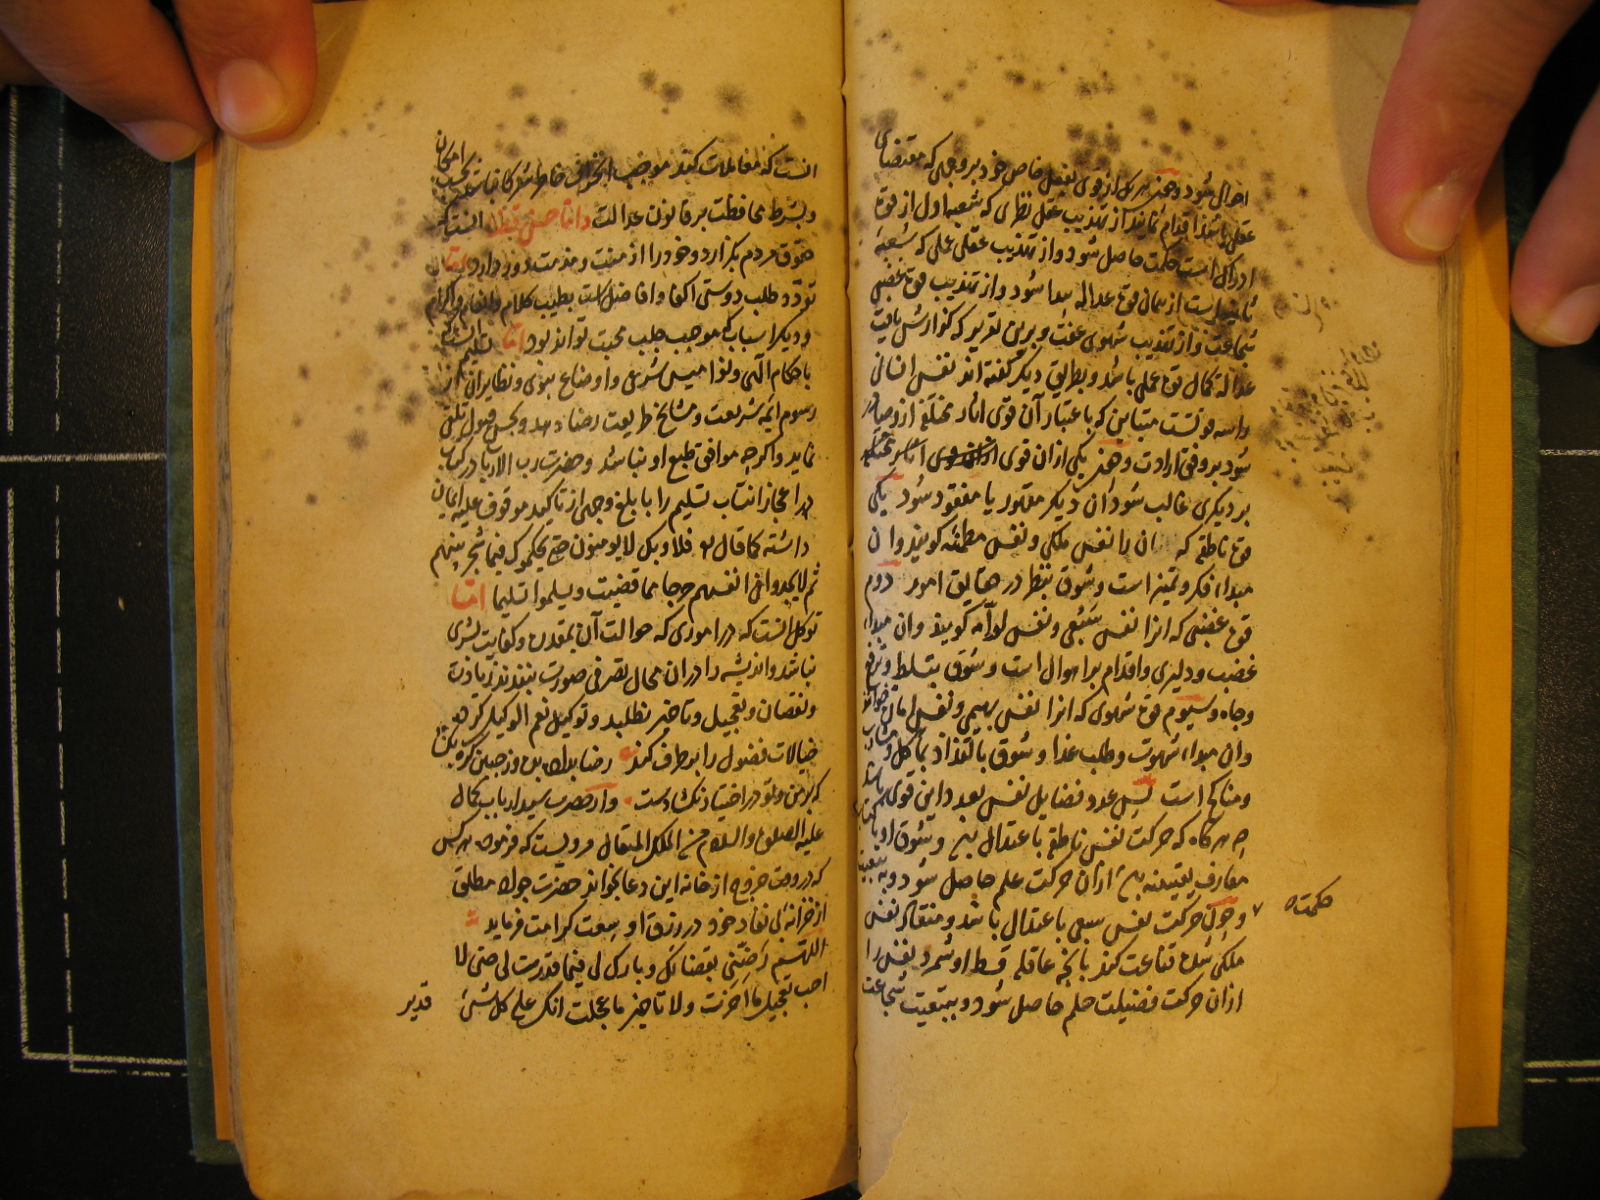 احوال شود و هر یک از قوی بفعل خاص خود بر وجهی که مقتضای
عقل باشد اقدام نمایند از تهذیب عقل نظری که شعبه اول از قوة
ادراک است حکمت حاصل شود و از تهذیب عقل عملی که شعبه
ثانیه است از همان قوة عدالة پیدا شود و از تهذیب قوة غضبی
شجاعت و از تهذیب شهوی عفت و برین تقریر که گزارش یافت
عدالة کمال قوة عملی باشد و بطریق دیگر گفته اند نفس انسانی
را سه قوتست متباین که باعتبار آن قوی آثار مختلفه ازو صادر
شود بر وفق ارادت و هر یکی ازان قوی
بر دیگری غالب شود آن دیگر مقهور یا مفقود شود یکی
قوة ناطقه که آن را نفس ملکی و نفس مطمئنه گویند و آن
مبداء فکر و تمیز است و شوق بنظر در حقایق امور دوم
قوة غضبی که انرا نفس سبعی و نفس لوامه گویند و ان مبداء
غضب و دلیری و اقدام بر اهوال است و شوق بتسلط و ترفع
و جاه و سیوم قوة شهوی که انرا نفس بهیمی و نفس اماره خوانند
و ان مبداء شهوت و طلب غذا و شوق بالتذاذ بمآکل و مشارب
و مناکح است پس عدد فضایل نفس بعدد این قوی باشد
چه هرگاه که حرکت نفس ناطقه باعتدال بود و شوق او باکتساب
معارف یقینیه بود ازان حرکت علم حاصل شود و به تبعیت
حکمت
و چون حرکت نفس سبعی باعتدال باشد و منقاد نفس
ملکی شده قناعت کند بآنچه عاقله قسط او شمرد نفس را
ازان حرکت فضیلت حلم حاصل شود و بتبعیت شجاعت
انست که معاملات کند موجب انحراف خاطر شرکا نباشد بحسب امکان
و بشرط محافظت بر قانون عدالت و اما حسن قضا انست که
حقوق مردم بگزارد و خود را از منت و مذمت دور دارد اما
تودد طلب دوستی اکفا و افاضل است بطیب کلام و انعام و اکرام
و دیگر اسباب که موجب جلب محبت تواند بود اما تسلیم انست که
باحکام الهی و نوامیس شرعی و اوضاع نبوی و نظایر ان از
رسوم ائمه شریعت و مشایخ طریقت رضا دهد و بحسن قبول تلقی
نماید و اگرچه موافق طبع او نباشد و حضرت رب الارباب در کتاب
اعجاز انتساب تسلیم را بابلغ وجهی از تاکید موقوف علیه ایمان
داشته کما قال فلا وربک لا یومنون حتی یحکموک فیما شجر بینهم
ثم لا یجدوا فی انفسهم حرجا مما قضیت ویسلموا تسلیما اما
توکل انست که در اموری که حوالت آن بمقدرت و کفایت بشری
نباشد و اندیشه را دران مجال تصرفی صورت نبندد زیادت
و نقصان و تعجیل و تاخیر نطلبد و توکیل نعم الوکیل کرده
خیالات فضول را بر طرف کند رضا بداده بده وز جبین گره بگشا
که بر من و تو در اختیار نگشادست و از حضرت سید ارباب کمال
علیه الصلوة والسلام من الملک المتعال مرویست که فرموده هر کس
که در وقت خروج از خانه این دعا بخواند حضرت جواد مطلق
از خزانه بی نفاد خود در رزق او وسعت کرامت فرماید
اللهم رضنی بقضائک وبارک لی فیما قدرت لی حتی لا
احب تعجیل ما اخرت ولا تاخیر ما عجلت انک علی کل شئ قدیر